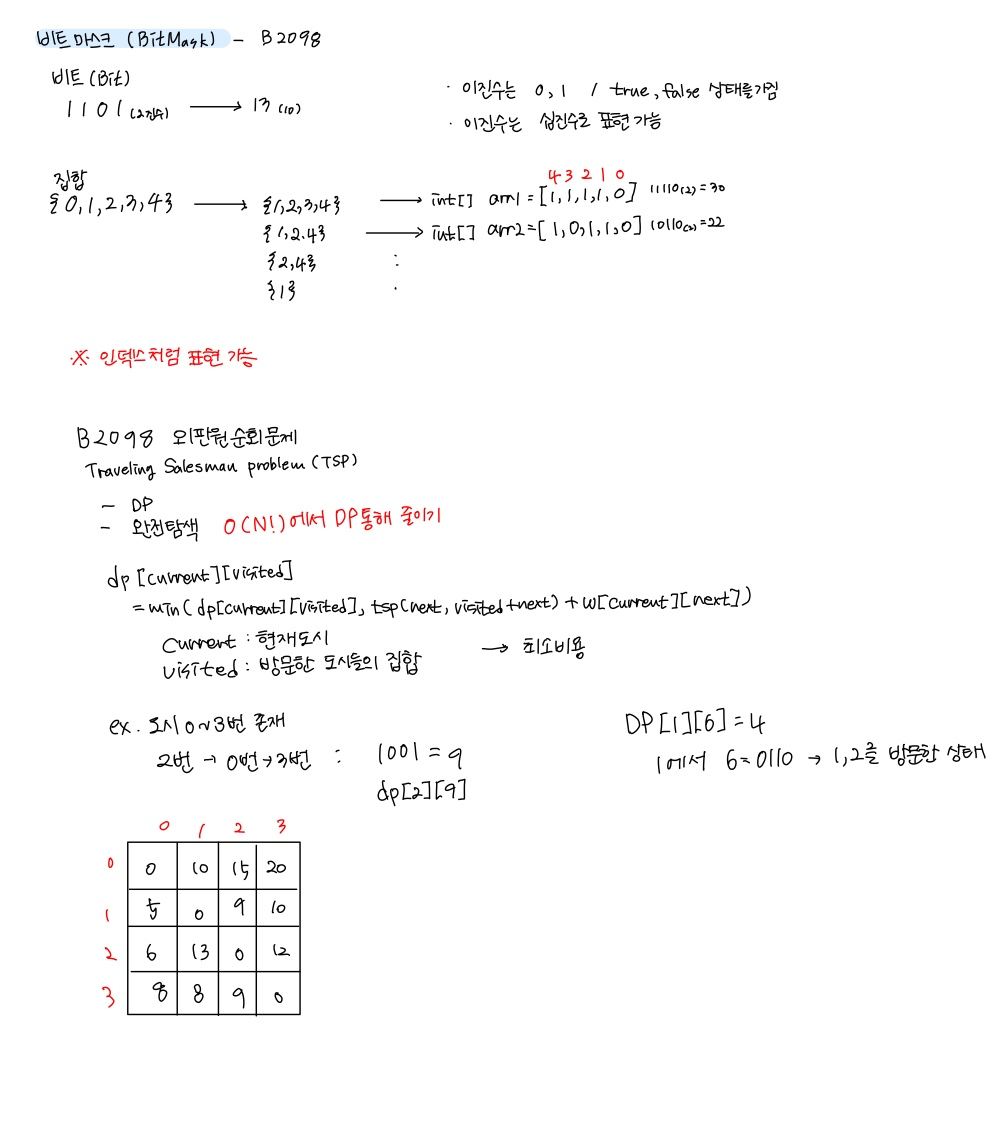 비트마스크 (BitMask) - B2098
비트 (Bit)
1101 (2진수) → 13 (10)
· 이진수는 0, 1 / true, false 상태를가짐
· 이진수는 십진수로 표현 가능
집합
{0,1,2,3,4} → {1,2,3,4} → int[] arr1 = [1,1,1,1,0] 11110(2) = 30
4 3 2 1 0
{1,2,4} → int[] arr2 = [1,0,1,1,0] 10110(2) = 22
{2,4} :
{1} .
※ 인덱스처럼 표현 가능
B2098 외판원순회문제
Traveling Salesman problem (TSP)
- DP
- 완전탐색 O(N!)에서 DP통해 줄이기
dp[current][visited]
= min(dp[current][visited], tsp(next, visited+next) + w[current][next])
current : 현재도시
visited : 방문한 도시들의 집합 → 최소비용
ex. 도시 0~3번 존재
2번 → 0번 → 3번 : 1001 = 9
dp[2][9]
DP[1][6] = 4
1에서 6 = 0110 → 1,2를 방문한 상태
0 1 2 3
0 0 10 15 20
1 5 0 9 10
2 6 13 0 12
3 8 8 9 0